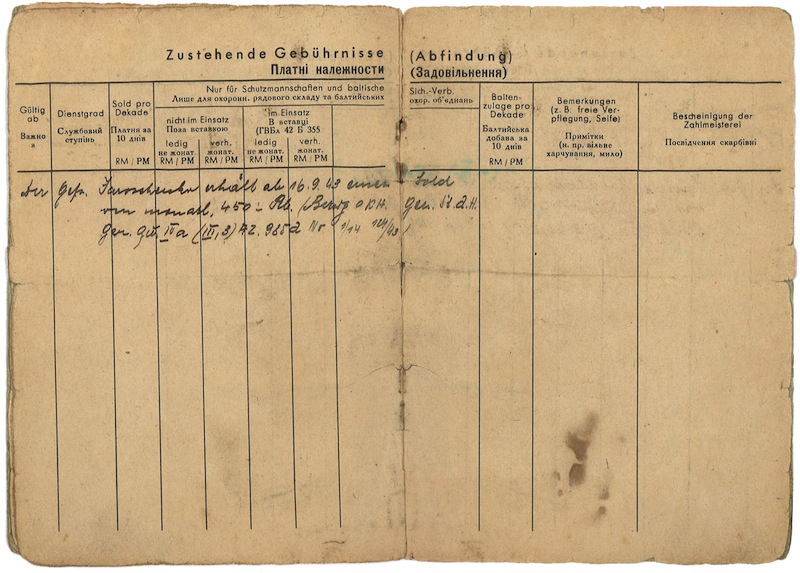 Zustehende Gebührnisse (Abfindung)
Платні належности (Задовільнення)
Gültig ab
Важно з
Dienstgrad
Службовий ступінь
Sold pro Dekade
Платня за 10 днів
RM / РМ
Nur für Schutzmannschaften und baltische Sich.-Verb.
Лише для охоронн. рядового складу та балтийських охор. об'єднань
nicht im Einsatz
Поза вставкою
ledig
не жонат.
RM / РМ
verh.
жонат.
RM / РМ
im Einsatz
В вставці
(ГВБл 42 Б 355
ledig
не жонат.
RM / РМ
verh.
жонат.
RM / РМ
Balten-
zulage pro
Dekade
Балтийська
добава за
10 днів
RM / РМ
Bemerkungen
(z. B. freie Ver-
pflegung, Seife)
Примітки
(н. пр. вільне
харчування, мило)
Bescheinigung der
Zahlmeisterei
Посвідчення скарбівні
Der Gefr. erhält ab 16.9.43 einen Sold
von monatl. 450.- Rb. (Bezug OKH. Gen. St. d. H.
Gen. Qu. IVa (III, 3) Az. 985a No 1/14